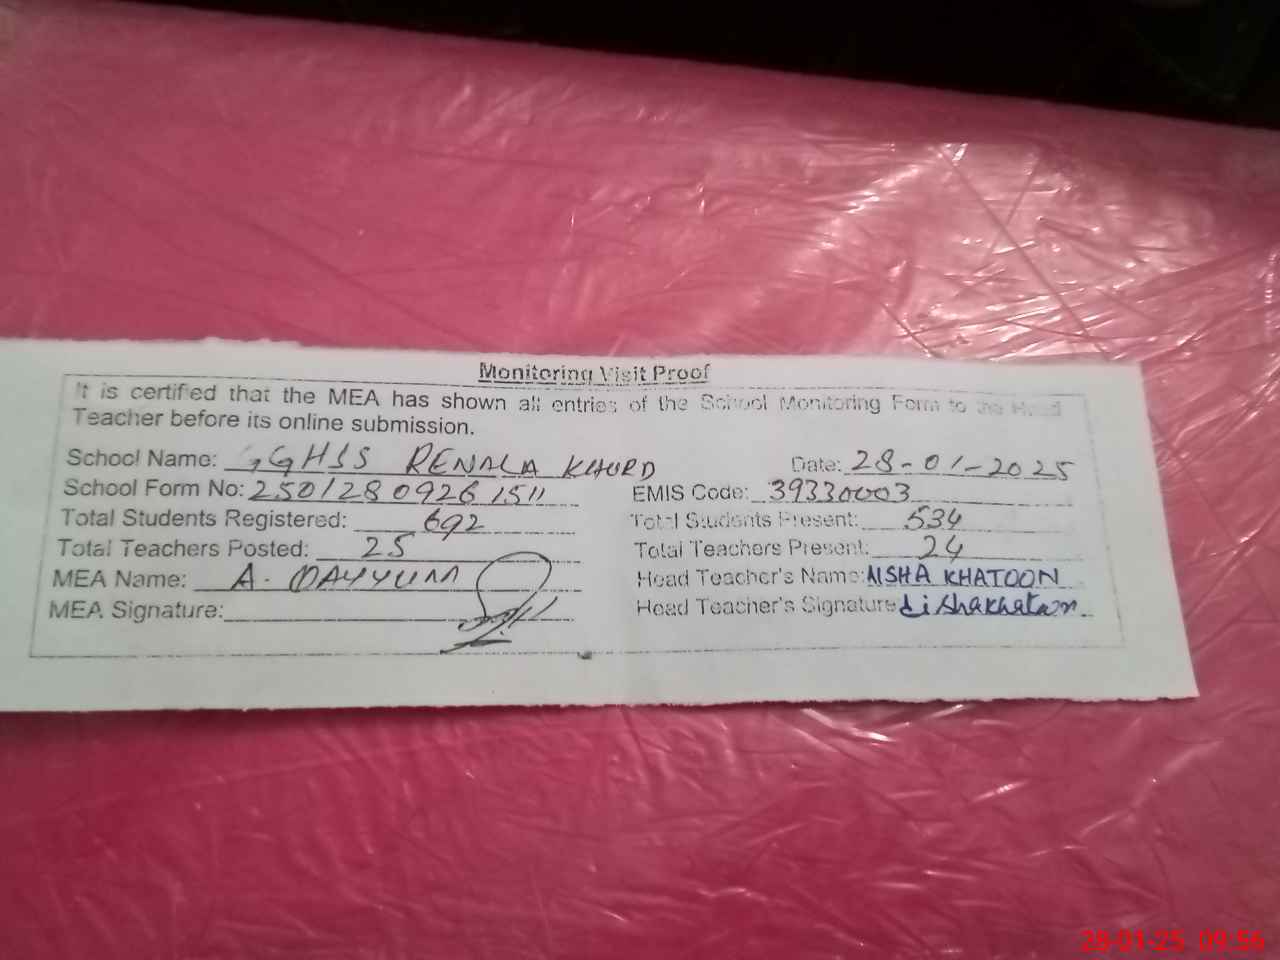 Monitoring Visit Proof
It is certified that the MEA has shown all entries of the School Monitoring Form to the Head
Teacher before its online submission.
School Name: GGHSS RENALA KHURD Date: 28-01-2025
School Form No: 2501280926 1511 EMIS Code: 39330003
Total Students Registered: 692 Total Students Present: 534
Total Teachers Posted: 25 Total Teachers Present: 24
MEA Name: A. QAYYUM Head Teacher's Name: AISHA KHATOON
MEA Signature: Head Teacher's Signature
28-01-25 09:56